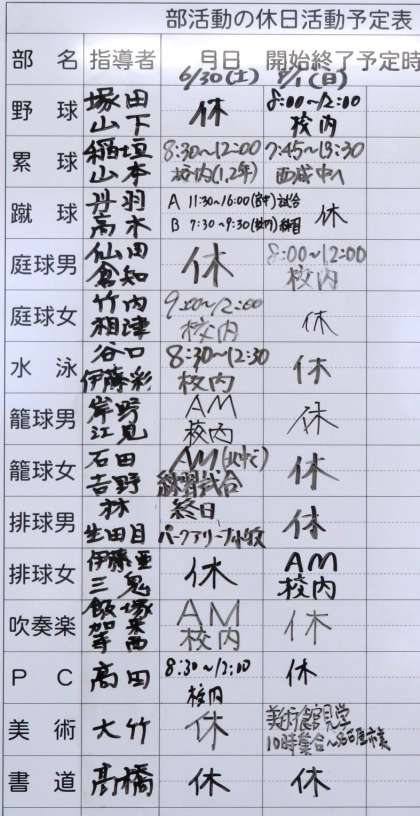 部活動の休日活動予定表
部 名 指導者 月日 開始終了予定時
6/30(土) 7/1(日)
野 球 塚田 山下 休 8:00~12:00 校内
塁 球 稲垣 山本 8:30~12:00 校内(1,2年) 7:45~13:30 西城中へ
蹴 球 丹羽 高木 A 11:30~16:00 試合 B 7:30~9:30(校内)練習 休
庭球男 仙田 倉知 休 8:00~12:00 校内
庭球女 竹内 相津 9:00~12:00 校内 休
水 泳 谷口 伊藤彩 8:30~12:30 校内 休
籠球男 岸野 江見 AM 校内 休
籠球女 石田 吉野 AM 練習試合 休
排球男 林 生田目 終日 パークアリーナ小牧 休
排球女 伊藤亜 三鬼 休 AM 校内
吹奏楽 飯塚 AM 校内 休
P C 高田 8:30~12:00 校内 休
美 術 大竹 休 美術館見学 10時集合~名古屋市美
書 道 髙橋 休 休